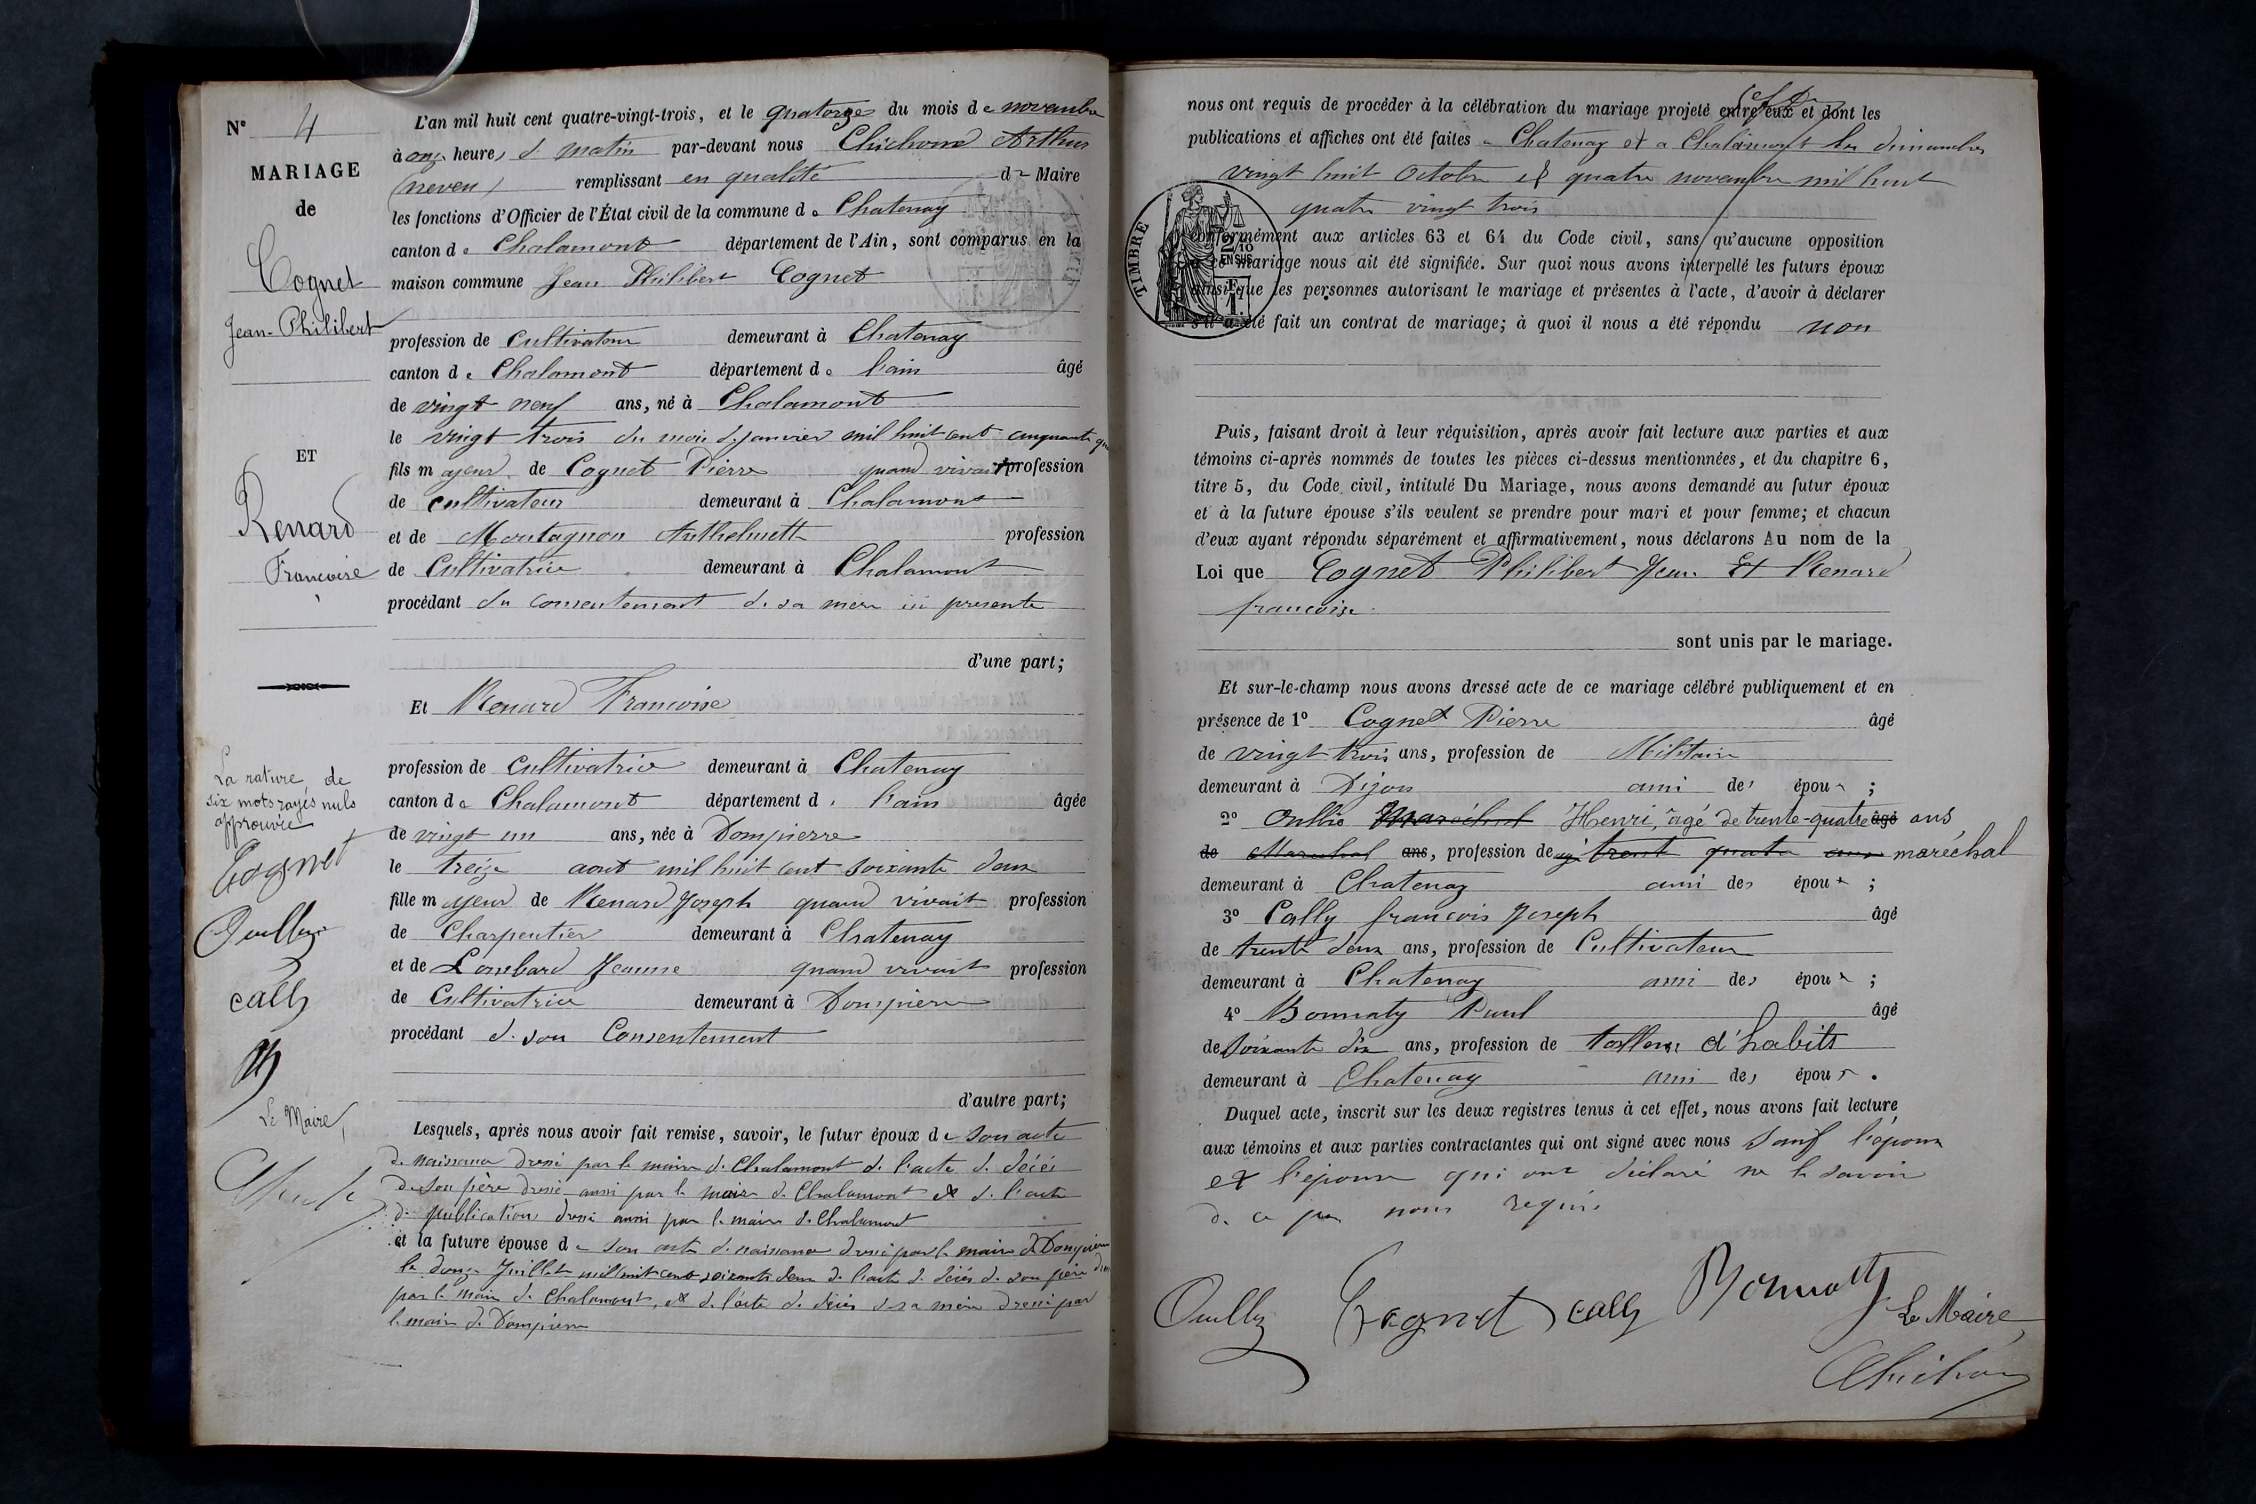 N° 4
MARIAGE
de
Cognet
Jean-Philibert
ET
Renard
Francoise
La rature de
six mots rayés nuls
approuvée
Cognet
Oully
Cally
Le Maire
L'an mil huit cent quatre-vingt-trois, et le quatorze du mois de novembre
à onz heures d matin par-devant nous Chichoud Arthur
(neveu) remplissant en qualité de Maire
les fonctions d'Officier de l'État civil de la commune de Chatenay
canton de Chalamont département de l'Ain, sont comparus en la
maison commune Jean Philibert Cognet
profession de Cultivateur demeurant à Chatenay
canton de Chalamont département de l'ain âgé
de vingt neuf ans, né à Chalamont
le vingt trois du mois de janvier mil huit cent cinquante
fils majeur de Cognet Pierre quand vivait profession
de cultivateur demeurant à Chalamont
et de Montagnon Anthelmette profession
de Cultivatrice demeurant à Chalamont
procédant du consentement de sa mere ici presente
d'une part;
Et Renard Francoise
profession de Cultivatrice demeurant à Chatenay
canton de Chalamont département de l'ain âgée
de vingt un ans, née à Dompierre
le treize aout mil huit cent soixante deux
fille majeur de Renard Joseph quand vivait profession
de Charpentier demeurant à Chatenay
et de Lombard Jeanne quand vivait profession
de Cultivatrice demeurant à Dompierre
procédant de son Consentement
d'autre part;
Lesquels, après nous avoir fait remise, savoir, le futur époux de son acte
de naissance dressé par le maire de Chalamont de l'acte de décés
de son père dressé aussi par le maire de Chalamont et de l'acte
de publication dressé aussi par le maire de Chalamont
et la future épouse de son acte de naissance dressé par le maire de Dompierre
le douze Juillet mil huit cent soixante deux de l'acte de décés de son père
par le maire de Chalamont, et de l'acte de décés de sa mère dressé par
le maire de Dompierre
nous ont requis de procéder à la célébration du mariage projeté entre eux et dont les
publications et affiches ont été faites a Chatenay et a Chalamont les dimanches
vingt huit Octobre et quatre novembre mil huit
quatre vingt trois
TIMBRE
2/10
EN SUS
conformément aux articles 63 et 64 du Code civil, sans qu'aucune opposition
à ce mariage nous ait été signifiée. Sur quoi nous avons interpellé les futurs époux
ainsi que les personnes autorisant le mariage et présentes à l'acte, d'avoir à déclarer
s'il a été fait un contrat de mariage; à quoi il nous a été répondu non
Puis, faisant droit à leur réquisition, après avoir fait lecture aux parties et aux
témoins ci-après nommés de toutes les pièces ci-dessus mentionnées, et du chapitre 6,
titre 5, du Code civil, intitulé Du Mariage, nous avons demandé au futur époux
et à la future épouse s'ils veulent se prendre pour mari et pour femme; et chacun
d'eux ayant répondu séparément et affirmativement, nous déclarons Au nom de la
Loi que Cognet Philibert Jean Et Renard
francoise
sont unis par le mariage.
Et sur-le-champ nous avons dressé acte de ce mariage célébré publiquement et en
présence de 1° Cognet Pierre âgé
de vingt trois ans, profession de Militaire
demeurant à Dijon ami des époux ;
2° Oullie Maréchal Henri, âgé de trente-quatre âgé ans
de Marechal ans, profession de agé trent quatre ans maréchal
demeurant à Chatenay ami des époux ;
3° Cally francois Joseph âgé
de trente deux ans, profession de Cultivateur
demeurant à Chatenay ami des époux ;
4° Bonnaty Paul âgé
de soixante dix ans, profession de tailleur d'habits
demeurant à Chatenay ami des époux .
Duquel acte, inscrit sur les deux registres tenus à cet effet, nous avons fait lecture
aux témoins et aux parties contractantes qui ont signé avec nous sauf l'époux
et l'épouse qui ont déclaré ne le savoir
de ce par nous requis
Oully Cognet Cally Bonnaty Le Maire,
Chichoud